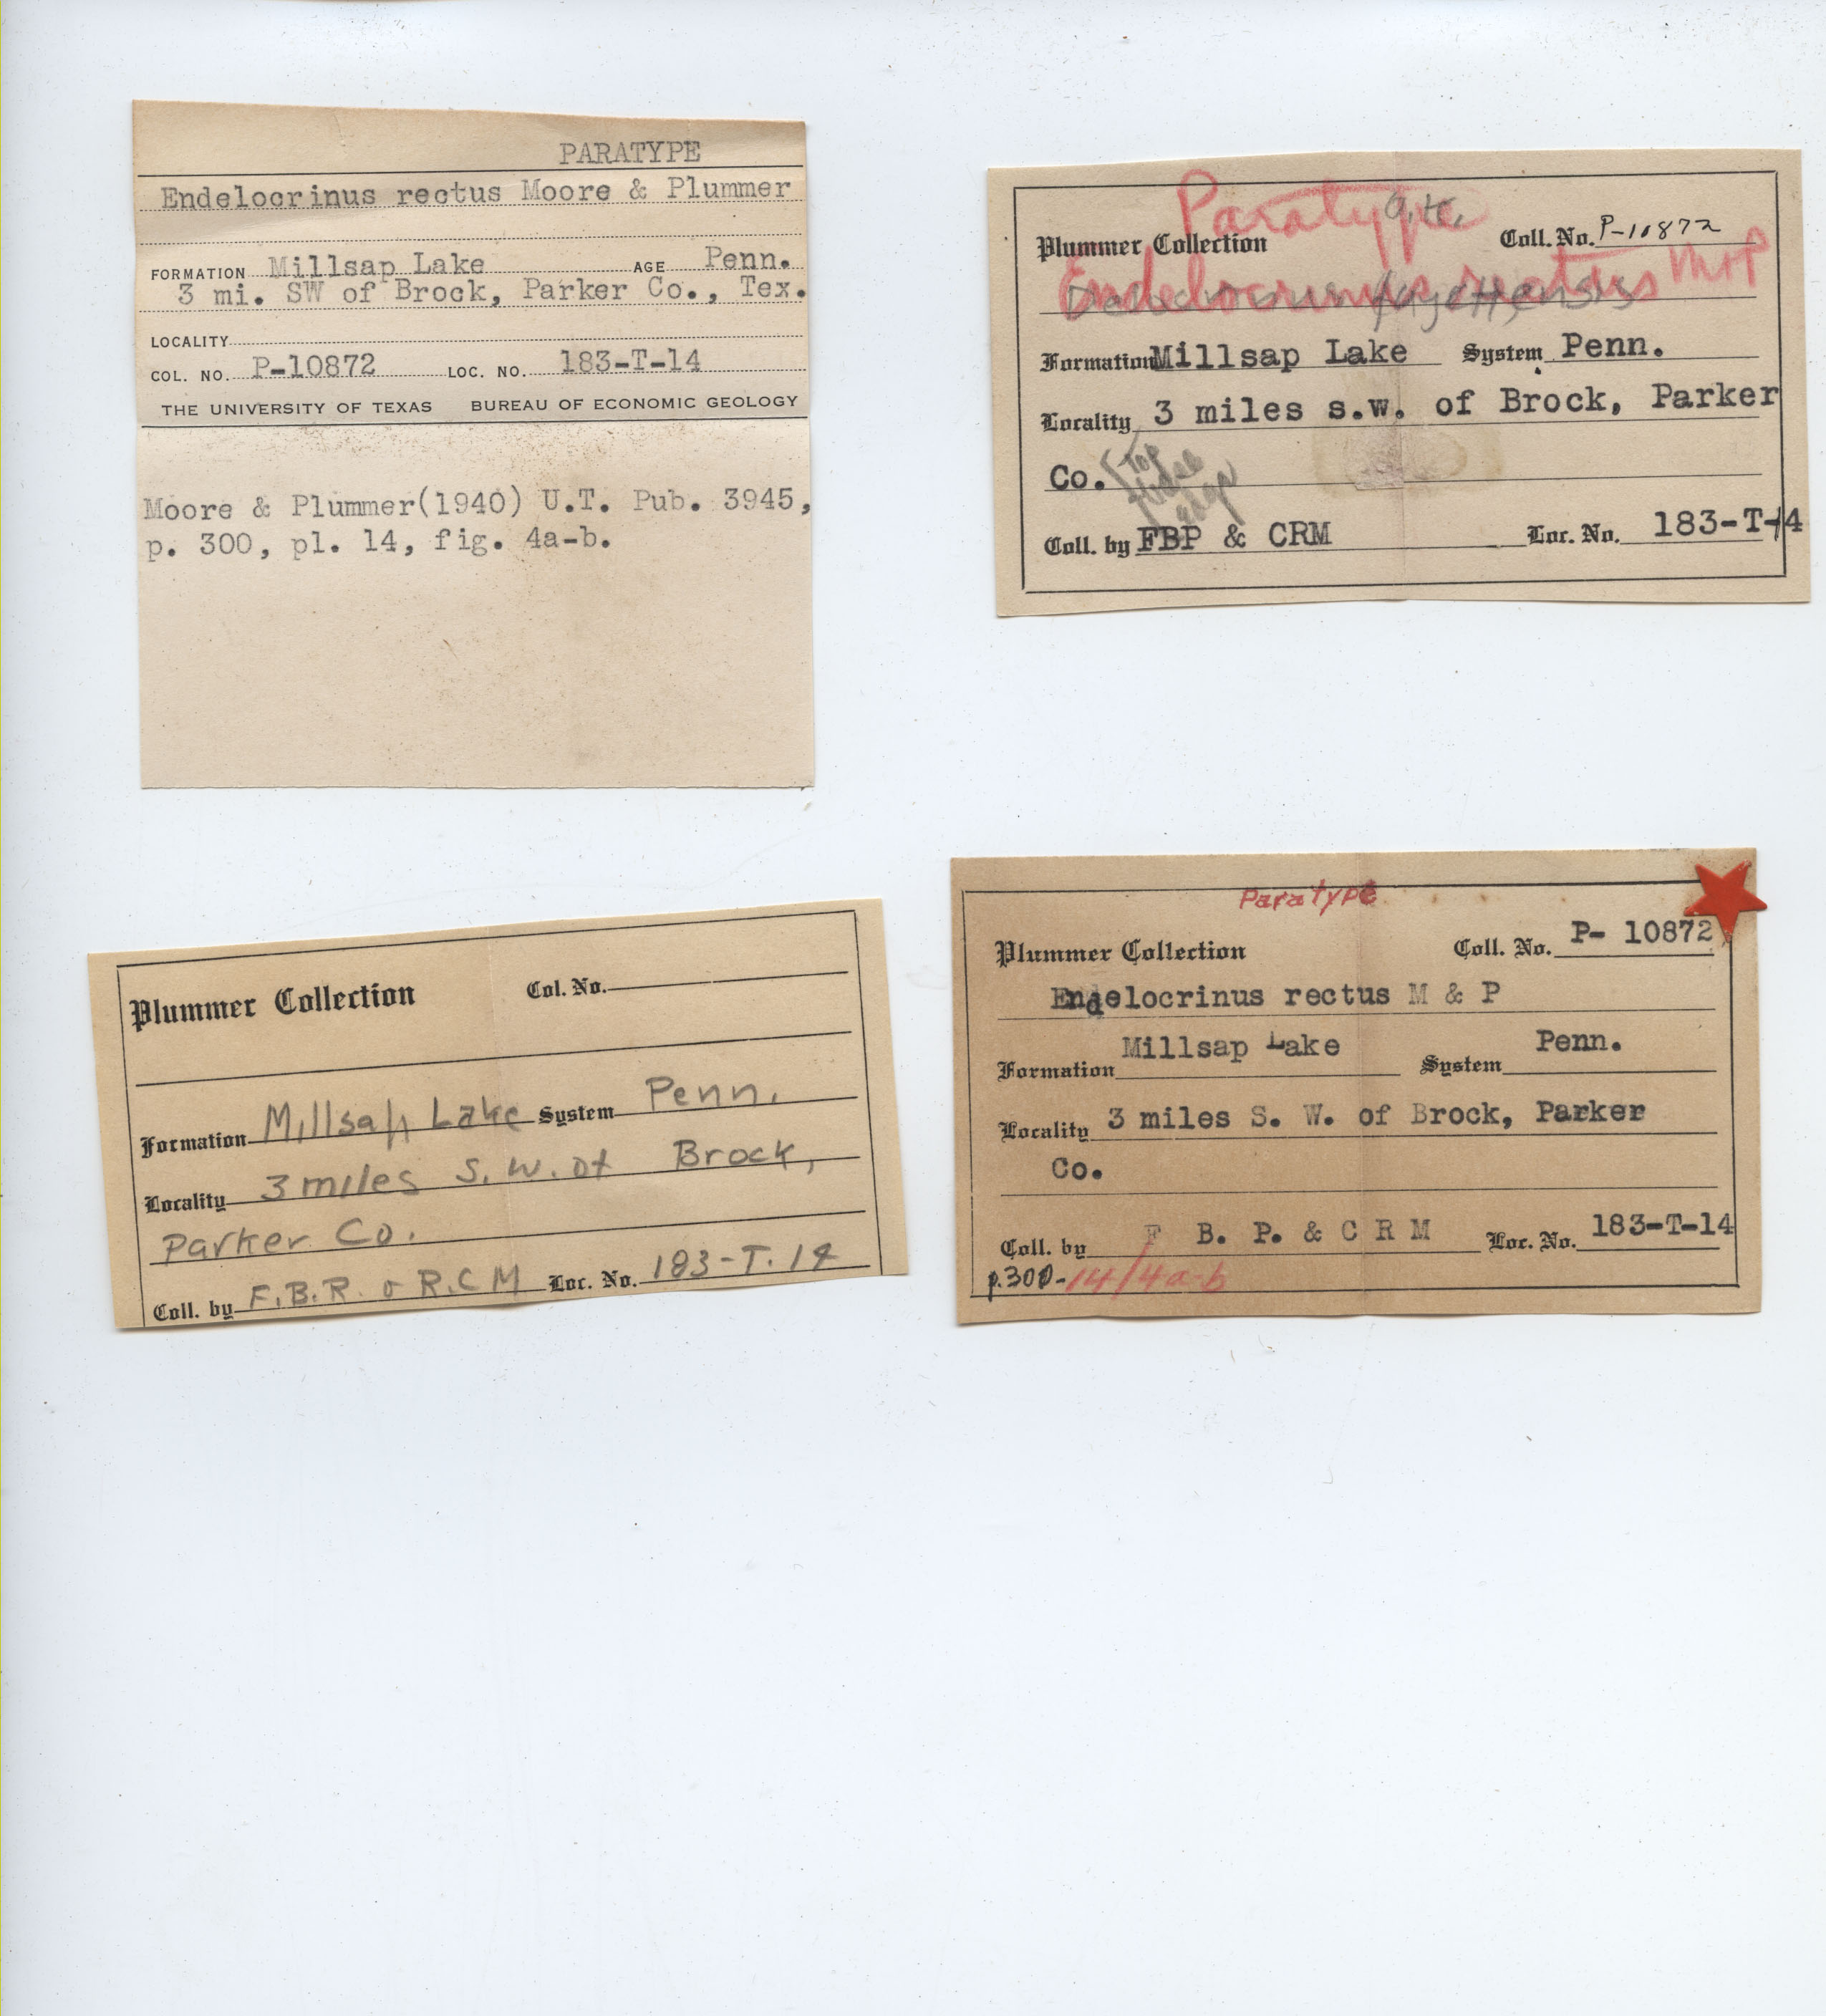 PARATYPE
Endelocrinus rectus Moore & Plummer
FORMATION Millsap Lake AGE Penn.
3 mi. SW of Brock, Parker Co., Tex.
LOCALITY
COL. NO. P-10872 LOC. NO. 183-T-14
THE UNIVERSITY OF TEXAS BUREAU OF ECONOMIC GEOLOGY
Moore & Plummer(1940) U.T. Pub. 3945,
p. 300, pl. 14, fig. 4a-b.
Paratype O.K.
Plummer Collection Coll. No. P-10872
Endelocrinus rectus M+P
Formation Millsap Lake System Penn.
Locality 3 miles s.w. of Brock, Parker
Co. Top
Coll. by FBP & CRM Loc. No. 183-T-14
Plummer Collection Col. No.
Formation Millsap Lake System Penn.
Locality 3 miles S. W. of Brock,
Parker Co.
Coll. by F.B.R. & R.C M Loc. No. 183-T. 14
Paratype
Plummer Collection Coll. No. P- 10872
Endelocrinus rectus M & P
Formation Millsap Lake System Penn.
Locality 3 miles S. W. of Brock, Parker
Co.
Coll. by F B. P. & C R M Loc. No. 183-T-14
p.300-14/4a-b